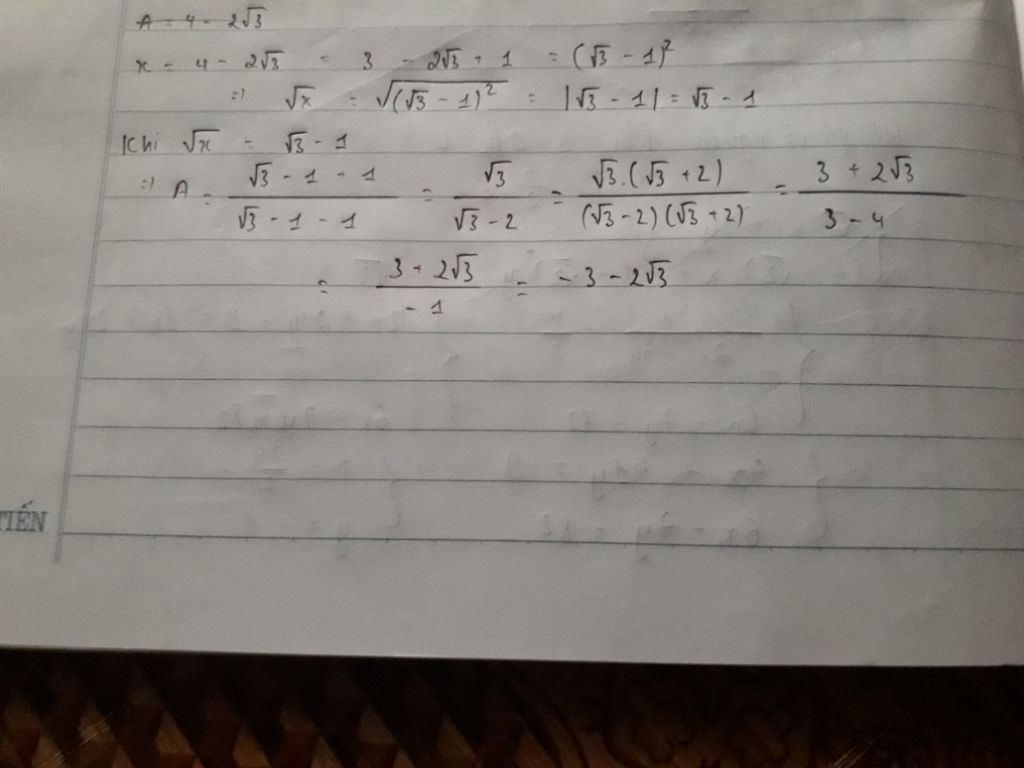 A = 4 - 2√3
x = 4 - 2√3 = 3 - 2√3 + 1 = (√3 - 1)²
=> √x = √(√3 - 1)² = |√3 - 1| = √3 - 1
Khi √x = √3 - 1
=> A = (√3 - 1 + 1)/(√3 - 1 - 1) = √3/(√3 - 2) = √3.(√3 + 2)/(√3 - 2)(√3 + 2) = (3 + 2√3)/(3 - 4)
= (3 + 2√3)/(- 1) = - 3 - 2√3
TIẾN